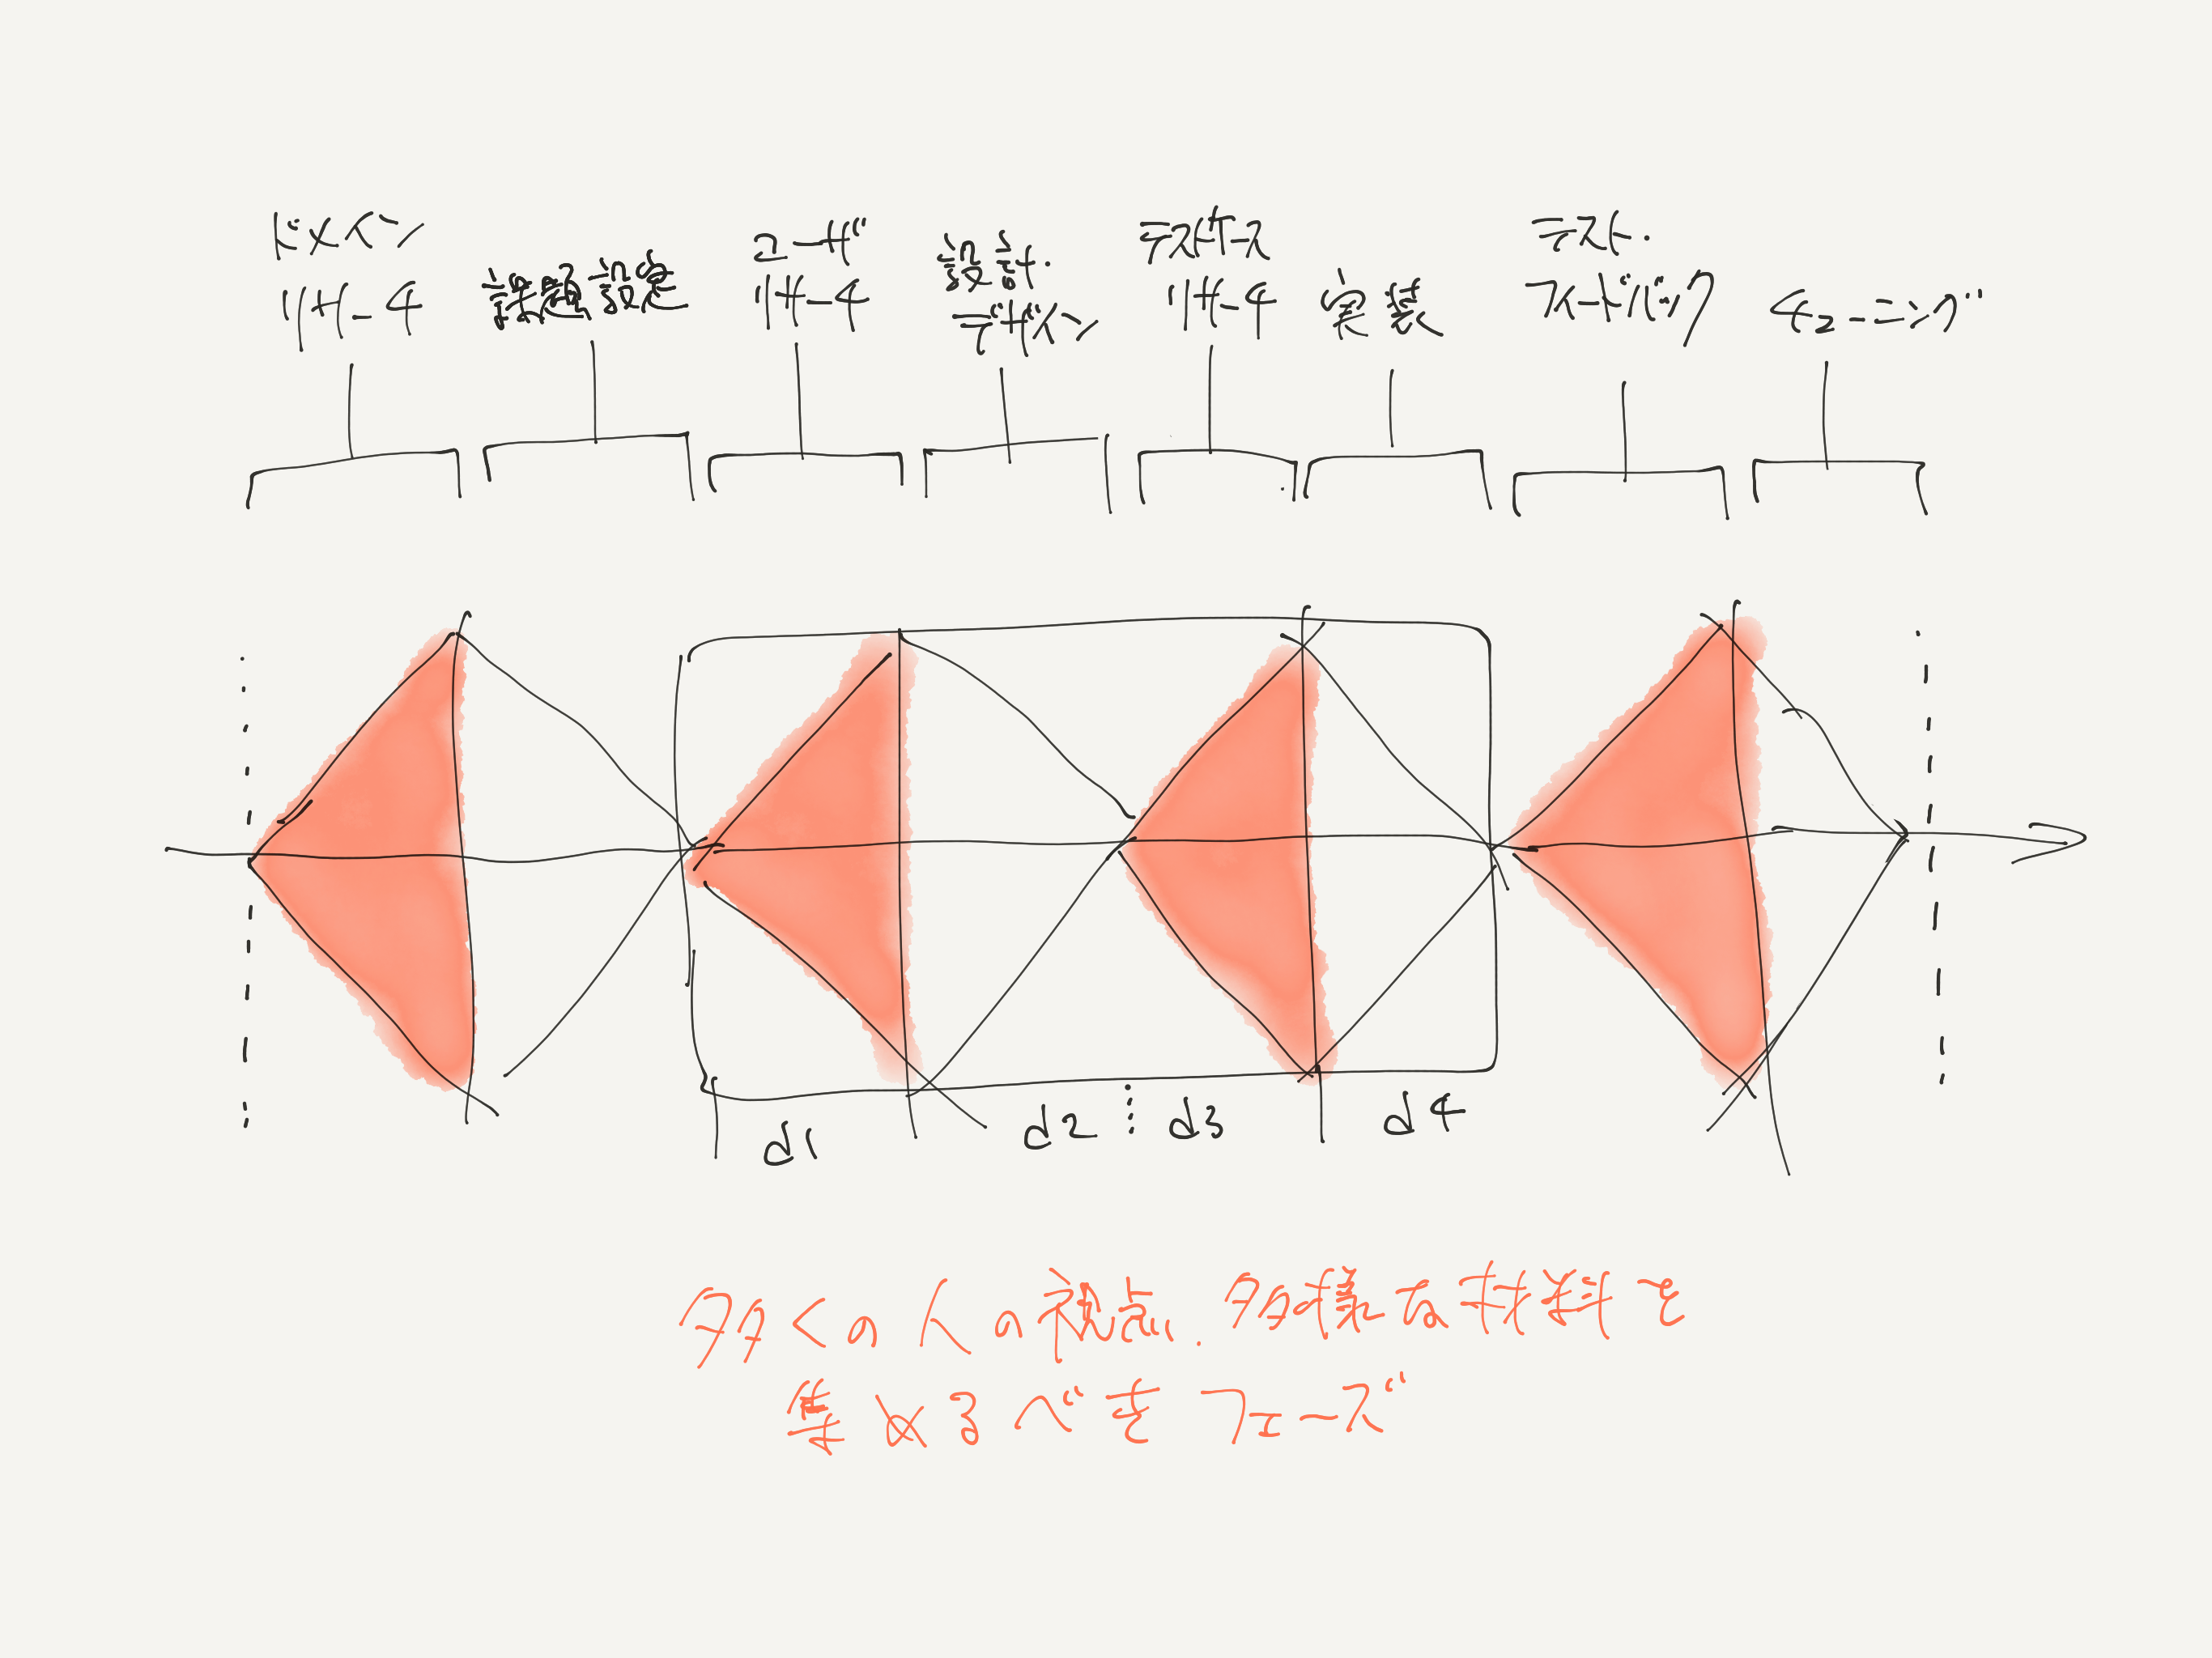 ドメイン
リサーチ
課題設定
ユーザ
リサーチ
設計・
デザイン
テストケース
リサーチ
実装
テスト・
フィードバック
チューニング
d1
d2
d3
d4
多くの人の視点、多様な材料を
集めるべきフェーズ